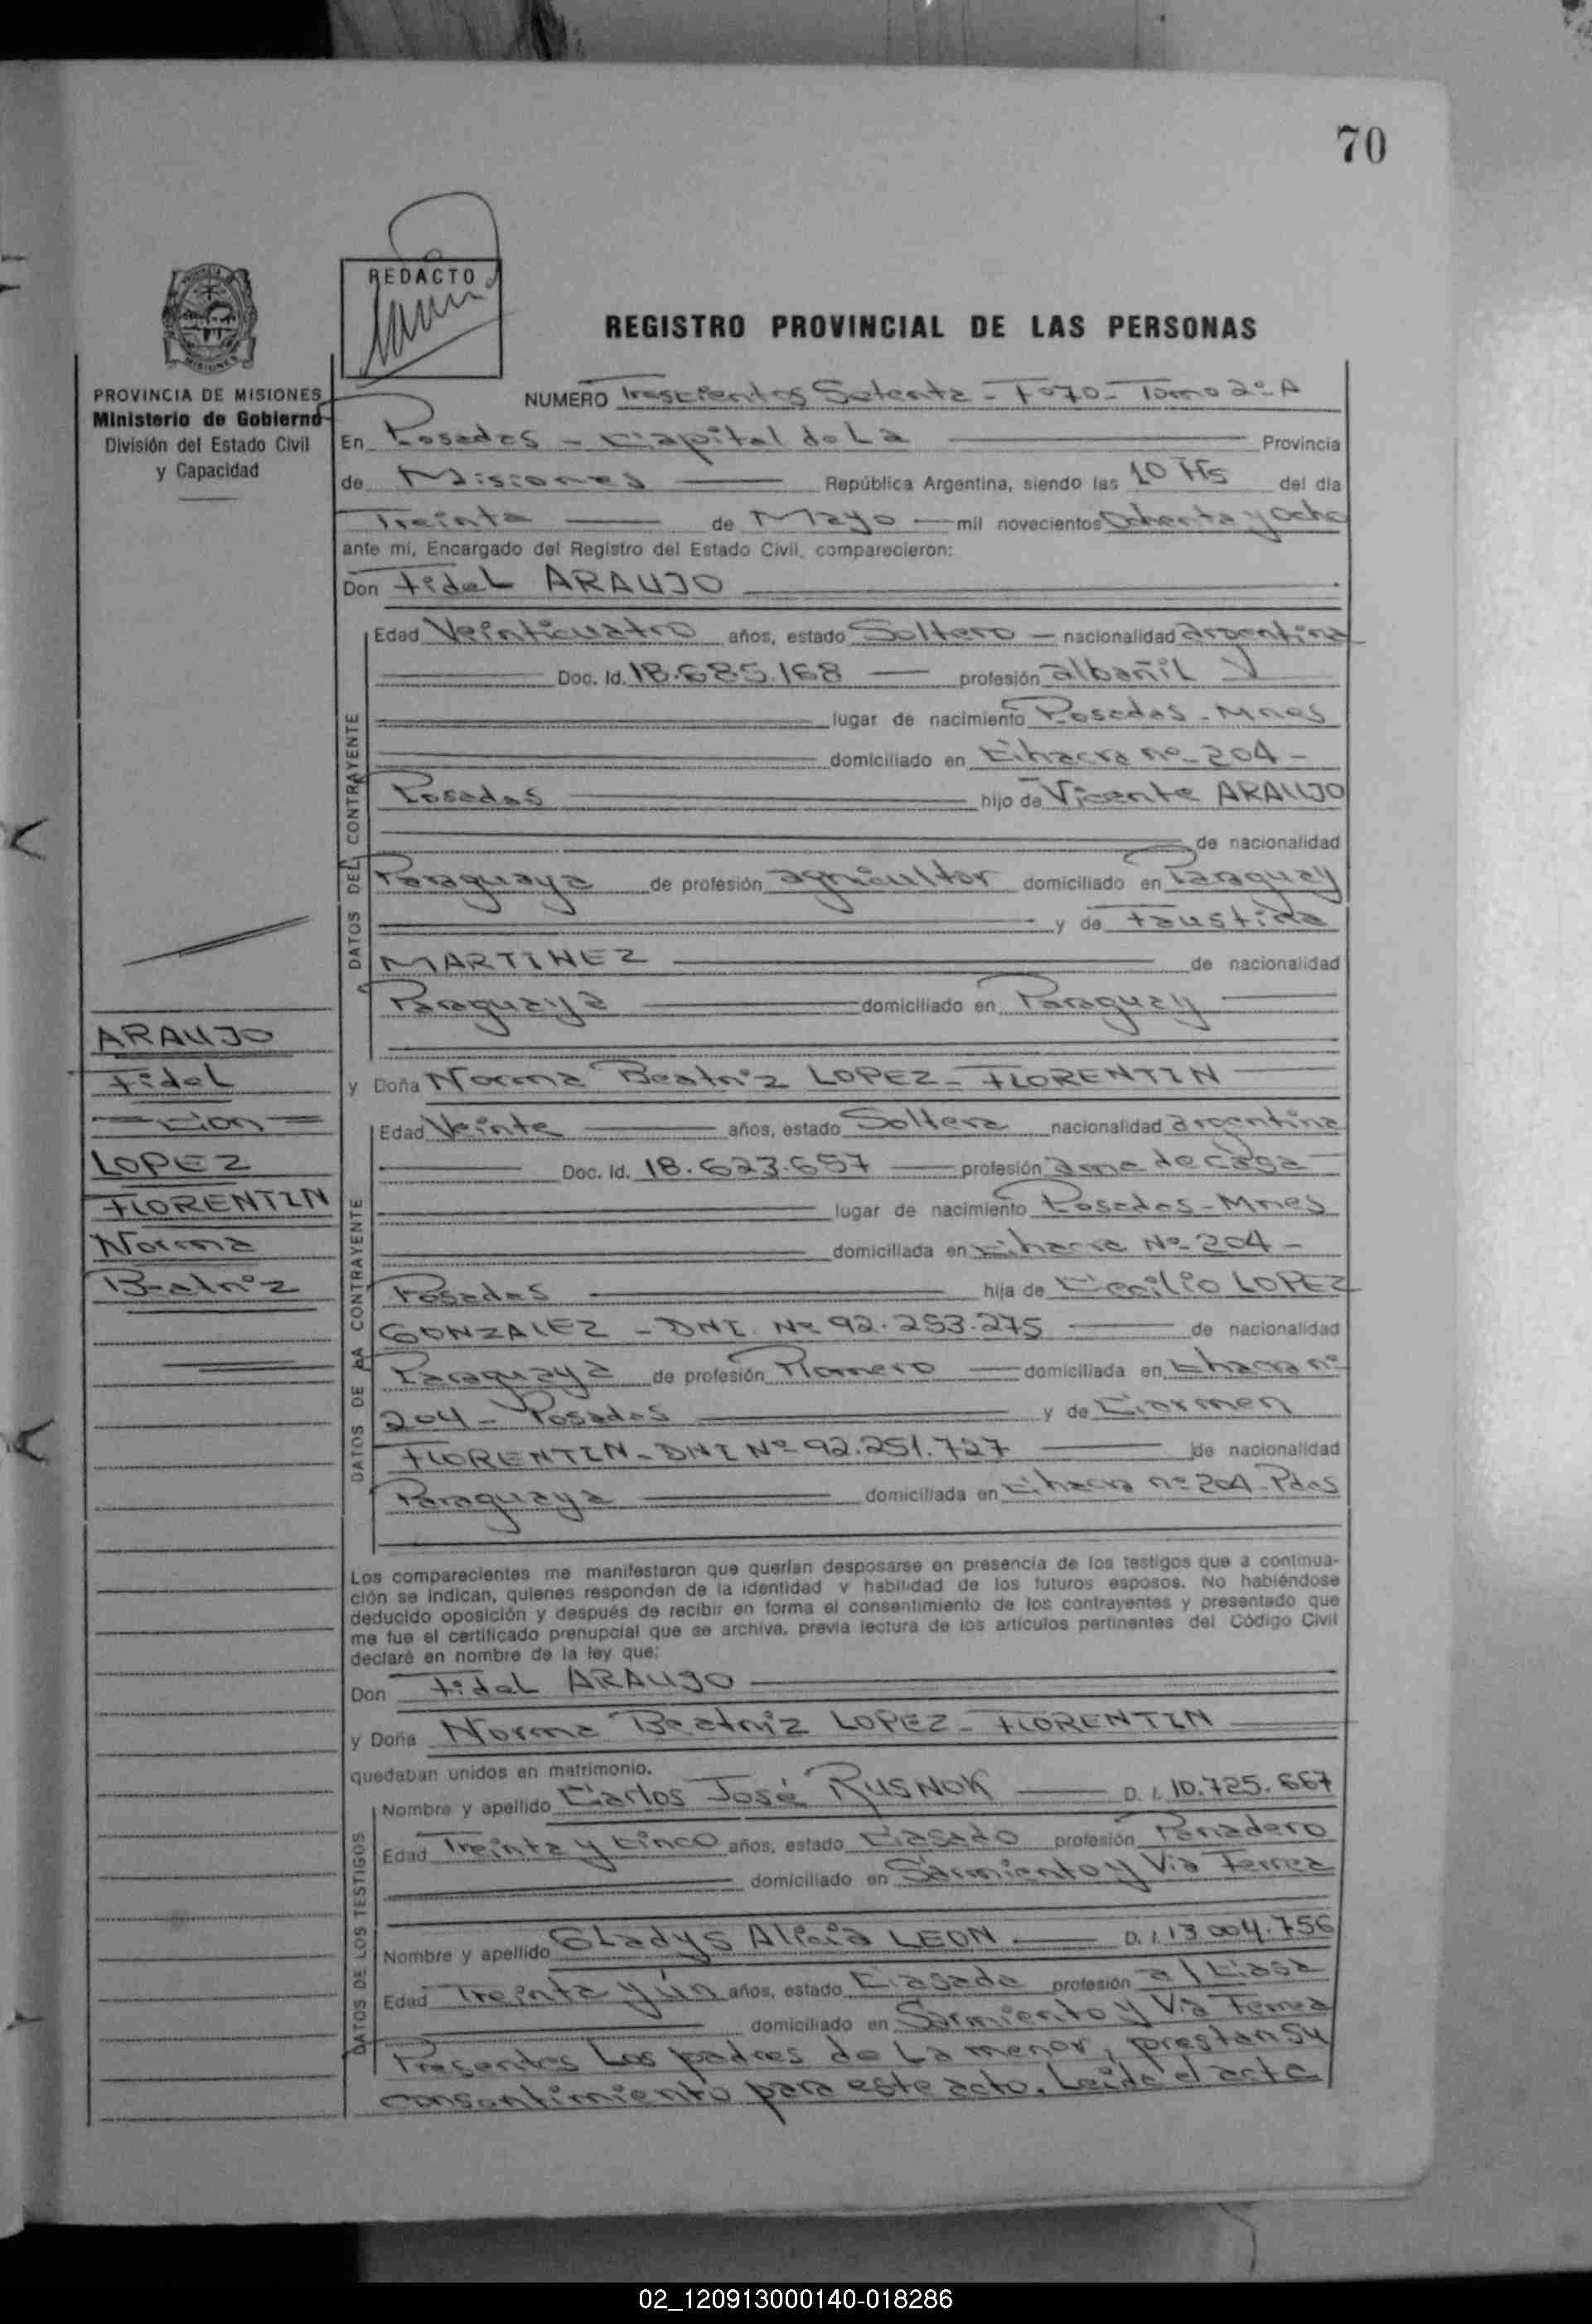 70
REDACTO
REGISTRO PROVINCIAL DE LAS PERSONAS
PROVINCIA DE MISIONES
Ministerio de Gobierno
División del Estado Civil
y Capacidad
NUMERO Trescientos Setenta - Fº70 - Tomo 2º - A
En Posadas - Capital de La Provincia
de Misiones República Argentina, siendo las 10 Hs del día
Treinta de Mayo mil novecientos Ochenta y Ocho
ante mí, Encargado del Registro del Estado Civil, comparecieron:
Don Fidel ARAUJO
DATOS DEL CONTRAYENTE
Edad Veinticuatro años, estado Soltero nacionalidad argentina
Doc. Id. 18.685.168 profesión albañil
lugar de nacimiento Posadas - Mnes
domiciliado en Chacra nº 204 -
Posadas hijo de Vicente ARAUJO
de nacionalidad
Paraguaya de profesión agricultor domiciliado en Paraguay
y de Faustina
MARTINEZ de nacionalidad
Paraguaya domiciliado en Paraguay
ARAUJO
Fidel
= con =
LOPEZ
FLORENTIN
Norma
Beatriz
y Doña Norma Beatriz LOPEZ - FLORENTIN
DATOS DE LA CONTRAYENTE
Edad Veinte años, estado Soltera nacionalidad argentina
Doc. Id. 18.623.657 profesión ama de casa
lugar de nacimiento Posadas - Mnes
domiciliada en Chacra Nº 204 -
Posadas hija de Cecilio LOPEZ
GONZALEZ - DNI Nº 92.253.275 de nacionalidad
Paraguaya de profesión Plomero domiciliada en Chacra nº
204 - Posadas y de Carmen
FLORENTIN - DNI Nº 92.251.727 de nacionalidad
Paraguaya domiciliada en Chacra nº 204 - Pdas
Los comparecientes me manifestaron que querían desposarse en presencia de los testigos que a continua-
ción se indican, quienes responden de la identidad y habilidad de los futuros esposos. No habiéndose
deducido oposición y después de recibir en forma el consentimiento de los contrayentes y presentado que
me fue el certificado prenupcial que se archiva, previa lectura de los artículos pertinentes del Código Civil
declaré en nombre de la ley que:
Don Fidel ARAUJO
y Doña Norma Beatriz LOPEZ - FLORENTIN
quedaban unidos en matrimonio.
DATOS DE LOS TESTIGOS
Nombre y apellido Carlos José RUSNOK D. I. 10.725.667
Edad Treinta y Cinco años, estado Casado profesión Panadero
domiciliado en Sarmiento y Vía Ferrea
Nombre y apellido Gladys Alicia LEON D. I. 13.004.756
Edad Treinta y ún años, estado Casada profesión a/ Casa
domiciliado en Sarmiento y Vía Ferrea
Presentes Los padres de La menor, prestan su
consentimiento para este acto. Leída el acta
02_120913000140-018286